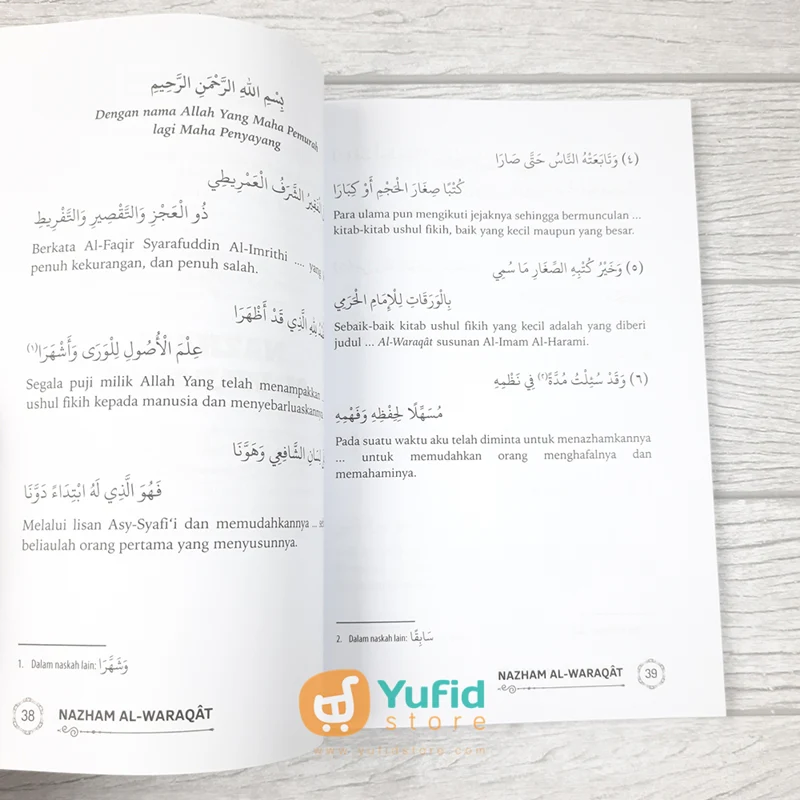 بِسْمِ اللهِ الرَّحْمَنِ الرَّحِيمِ
Dengan nama Allah Yang Maha Pemurah
lagi Maha Penyayang
الشَّرَفُ الْعَمْرِيطِي
ذُو الْعَجْزِ وَالتَّقْصِيرِ وَالتَّفْرِيطِ
Berkata Al-Faqir Syarafuddin Al-Imrithi ....
penuh kekurangan, dan penuh salah.
الَّذِي قَدْ أَظْهَرَا
عِلْمَ الْأُصُولِ لِلْوَرَى وَأَشْهَرَا(١)
Segala puji milik Allah Yang telah menampakkan
ushul fikih kepada manusia dan menyebarluaskannya
لِسَانِ الشَّافِعِي وَهَوَّنَا
فَهُوَ الَّذِي لَهُ ابْتِدَاءً دَوَّنَا
Melalui lisan Asy-Syafi‘i dan memudahkannya ...
beliaulah orang pertama yang menyusunnya.
1. Dalam naskah lain: وَشَهَّرَا
38 NAZHAM AL-WARAQÂT
(٤) وَتَابَعَتْهُ النَّاسُ حَتَّى صَارَا
كُتْبًا صِغَارَ الْحَجْمِ أَوْ كِبَارَا
Para ulama pun mengikuti jejaknya sehingga bermunculan ...
kitab-kitab ushul fikih, baik yang kecil maupun yang besar.
(٥) وَخَيْرُ كُتْبِهِ الصِّغَارِ مَا سُمِي
بِالْوَرَقَاتِ لِلْإِمَامِ الْحَرَمِي
Sebaik-baik kitab ushul fikih yang kecil adalah yang diberi
judul ... Al-Waraqât susunan Al-Imam Al-Harami.
(٦) وَقَدْ سُئِلْتُ مُدَّةً(٢) فِي نَظْمِهِ
مُسَهِّلًا لِحِفْظِهِ وَفَهْمِهِ
Pada suatu waktu aku telah diminta untuk menazhamkannya
... untuk memudahkan orang menghafalnya dan
memahaminya.
2. Dalam naskah lain: سَابِقًا
NAZHAM AL-WARAQÂT 39
Yufid
store
www.yufidstore.com